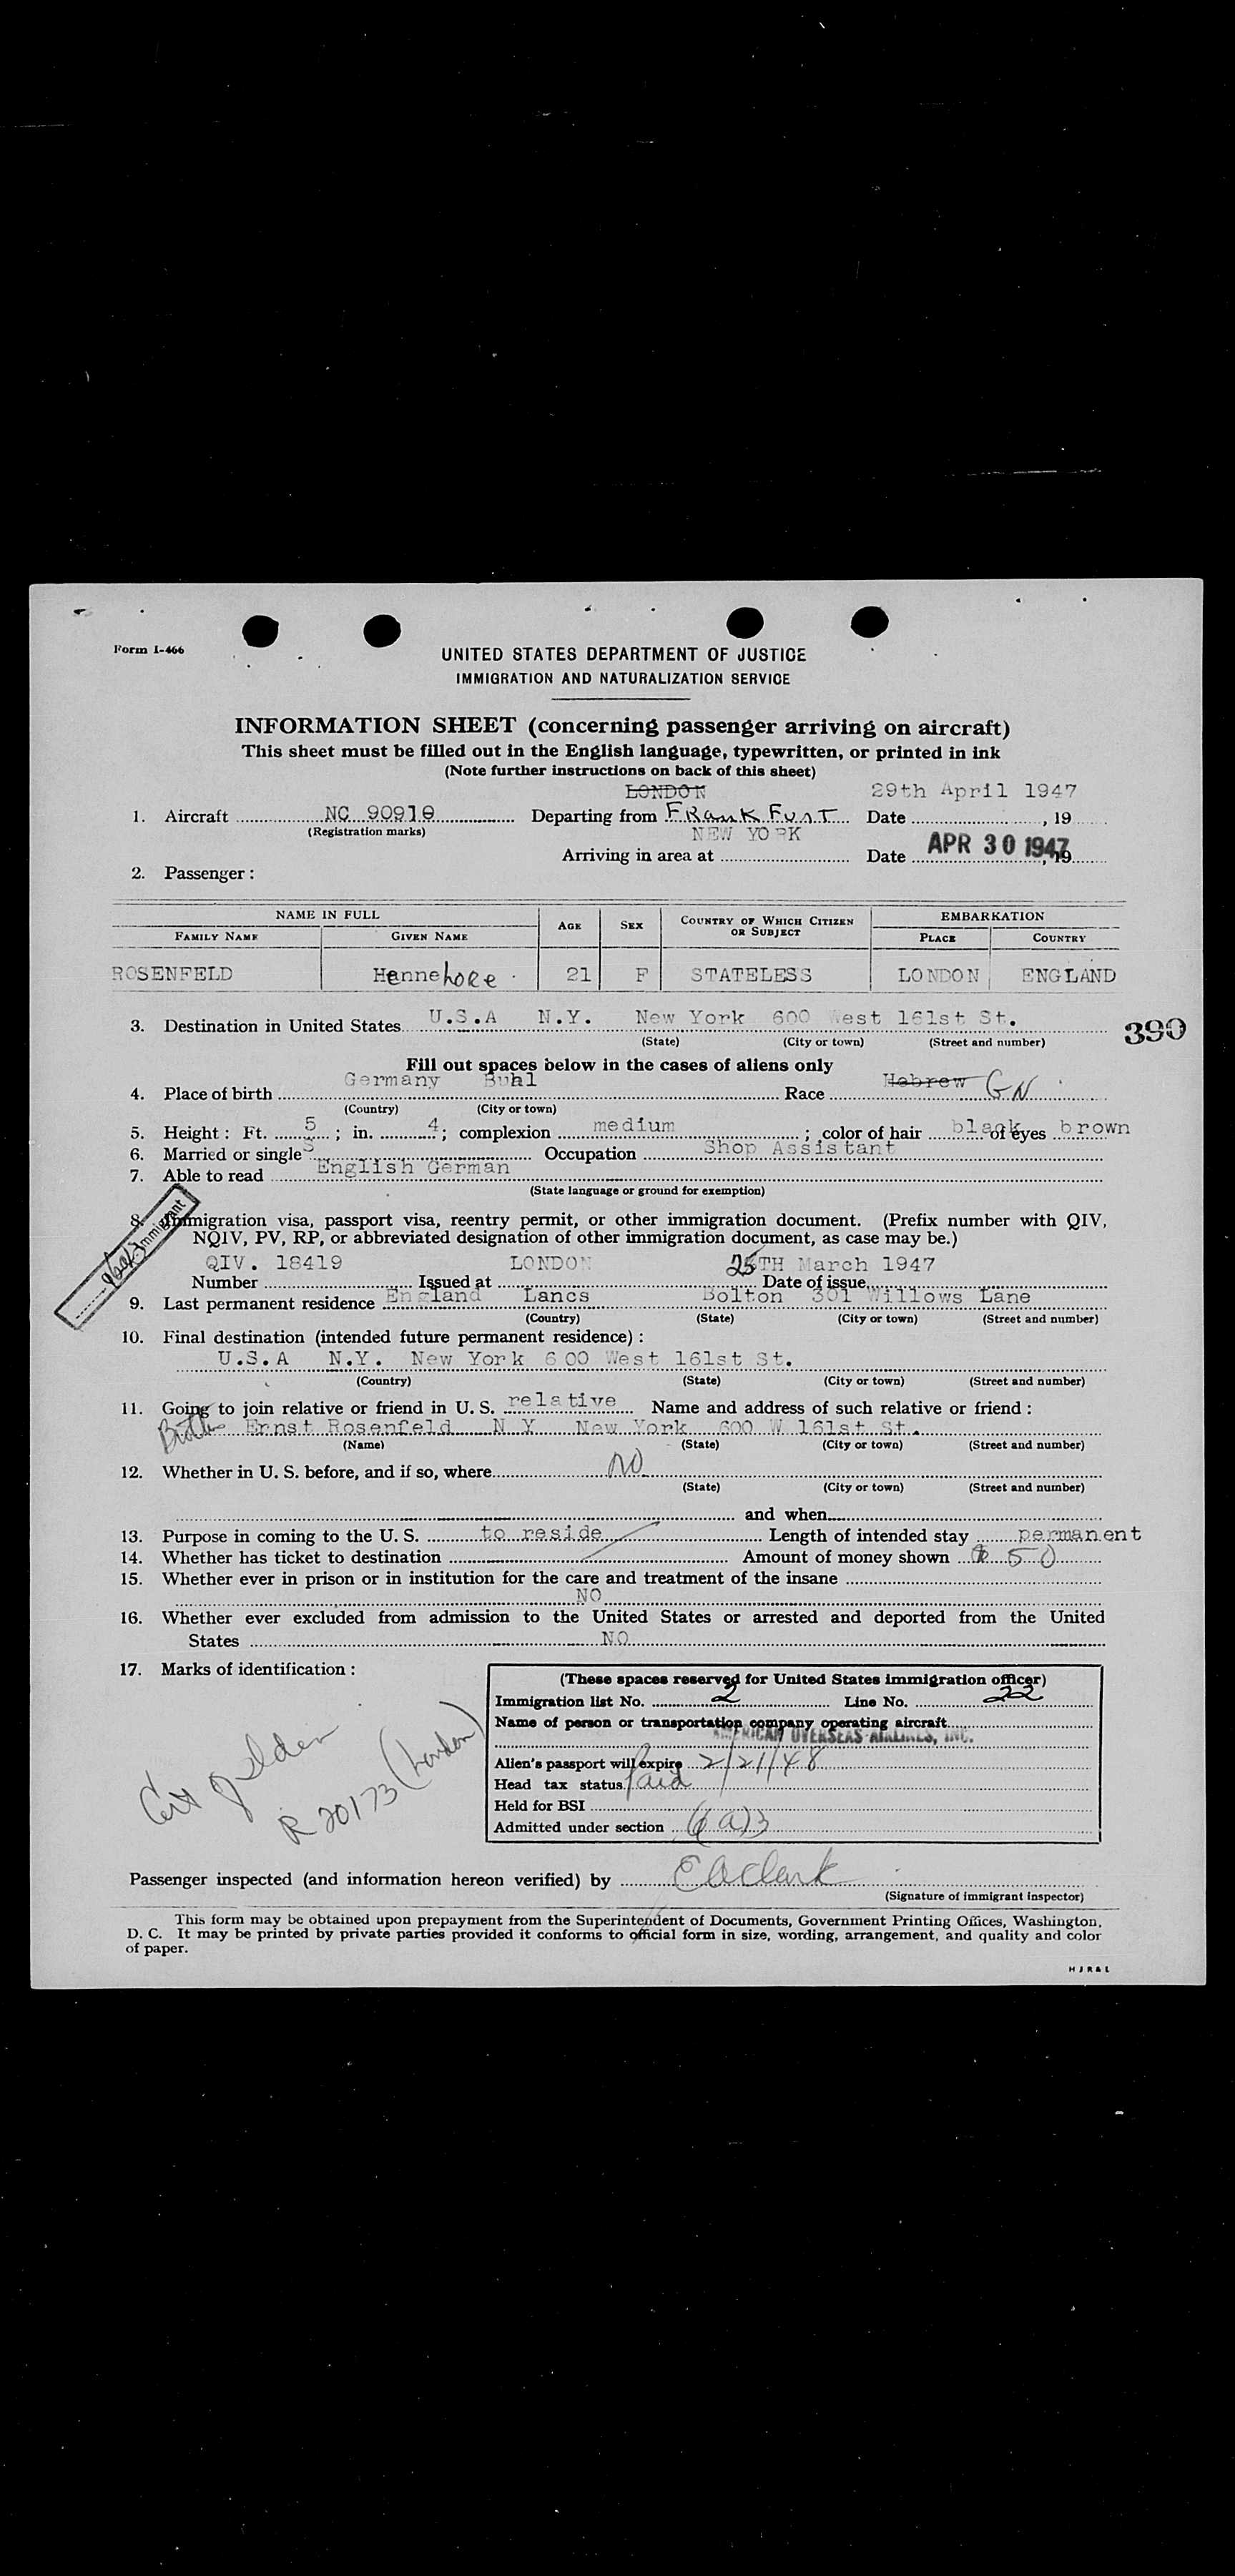 Form I-466
UNITED STATES DEPARTMENT OF JUSTICE
IMMIGRATION AND NATURALIZATION SERVICE
INFORMATION SHEET (concerning passenger arriving on aircraft)
This sheet must be filled out in the English language, typewritten, or printed in ink
(Note further instructions on back of this sheet)
LONDON 29th April 1947
1. Aircraft NC 90910 Departing from FRankFurT Date , 19
(Registration marks) NEW YORK
Arriving in area at Date APR 30 1947, 19
2. Passenger :
NAME IN FULL AGE SEX COUNTRY OF WHICH CITIZEN OR SUBJECT EMBARKATION
FAMILY NAME GIVEN NAME PLACE COUNTRY
ROSENFELD Hannelore 21 F STATELESS LONDON ENGLAND
3. Destination in United States U.S.A N.Y. New York 600 West 161st St.
(State) (City or town) (Street and number)
390
Fill out spaces below in the cases of aliens only
4. Place of birth Germany Buhl Race Hebrew GN
(Country) (City or town)
5. Height : Ft. 5 ; in. 4 ; complexion medium ; color of hair black of eyes brown
6. Married or single S Occupation Shop Assistant
7. Able to read English German
(State language or ground for exemption)
Immigrant
8. Immigration visa, passport visa, reentry permit, or other immigration document. (Prefix number with QIV,
NQIV, PV, RP, or abbreviated designation of other immigration document, as case may be.)
QIV. 18419 LONDON 25TH March 1947
Number Issued at Date of issue
9. Last permanent residence England Lancs Bolton 301 Willows Lane
(Country) (State) (City or town) (Street and number)
10. Final destination (intended future permanent residence) :
U.S.A N.Y. New York 600 West 161st St.
(Country) (State) (City or town) (Street and number)
11. Going to join relative or friend in U. S. relative Name and address of such relative or friend :
Brother Ernst Rosenfeld N Y New York 600 W 161st St.
(Name) (State) (City or town) (Street and number)
12. Whether in U. S. before, and if so, where NO
(State) (City or town) (Street and number)
and when
13. Purpose in coming to the U. S. to reside Length of intended stay permanent
14. Whether has ticket to destination Amount of money shown $ 50
15. Whether ever in prison or in institution for the care and treatment of the insane
NO
16. Whether ever excluded from admission to the United States or arrested and deported from the United
States NO
17. Marks of identification :
(These spaces reserved for United States immigration officer)
Immigration list No. 2 Line No. 22
Name of person or transportation company operating aircraft
AMERICAN OVERSEAS AIRLINES, INC.
Alien's passport will expire 2/21/48
Head tax status Paid
Held for BSI
Admitted under section 6(a)3
R 20173 (London)
Passenger inspected (and information hereon verified) by E A Clark
(Signature of immigrant inspector)
This form may be obtained upon prepayment from the Superintendent of Documents, Government Printing Offices, Washington,
D. C. It may be printed by private parties provided it conforms to official form in size, wording, arrangement, and quality and color
of paper.
H J R & L